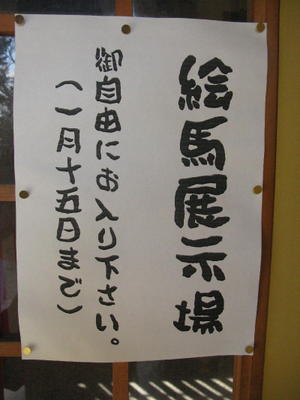 絵馬展示場
御自由にお入り下さい。
(一月十五日まで)